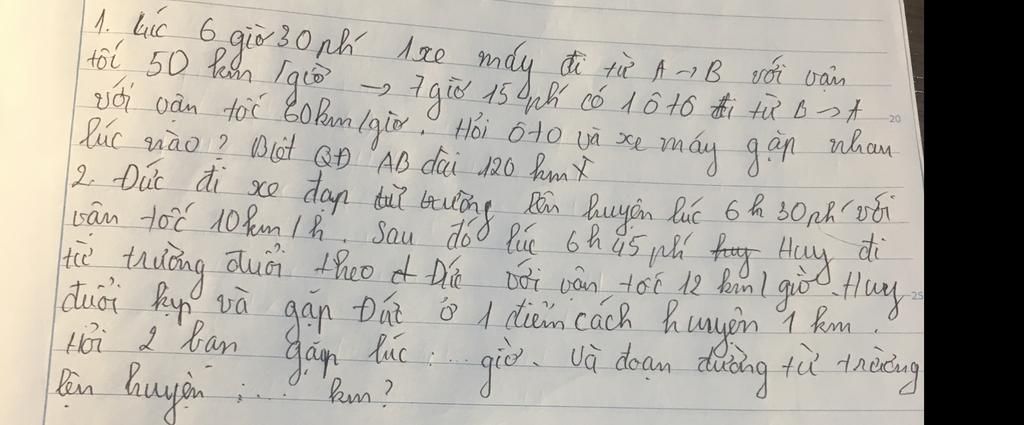 1. Lúc 6 giờ 30 phí 1 xe máy đi từ A → B với vận
tốc 50 km/giờ → 7 giờ 15 phí có 1 ô tô đi từ B → A
với vận tốc 60km/giờ. Hỏi ô tô và xe máy gặp nhau
lúc nào? Biết QĐ AB dài 120 km
2. Đức đi xe đạp từ trường lên huyện lúc 6h 30 phí với
vận tốc 10km/h. Sau đó lúc 6h 45 phí Huy đi
từ trường đuổi theo Đức với vận tốc 12 km/giờ. Huy
đuổi kịp và gặp Đức ở 1 điểm cách huyện 1 km.
Hỏi 2 bạn gặp lúc : ... giờ. Và đoạn đường từ trường
lên huyện : ... km?
20
25